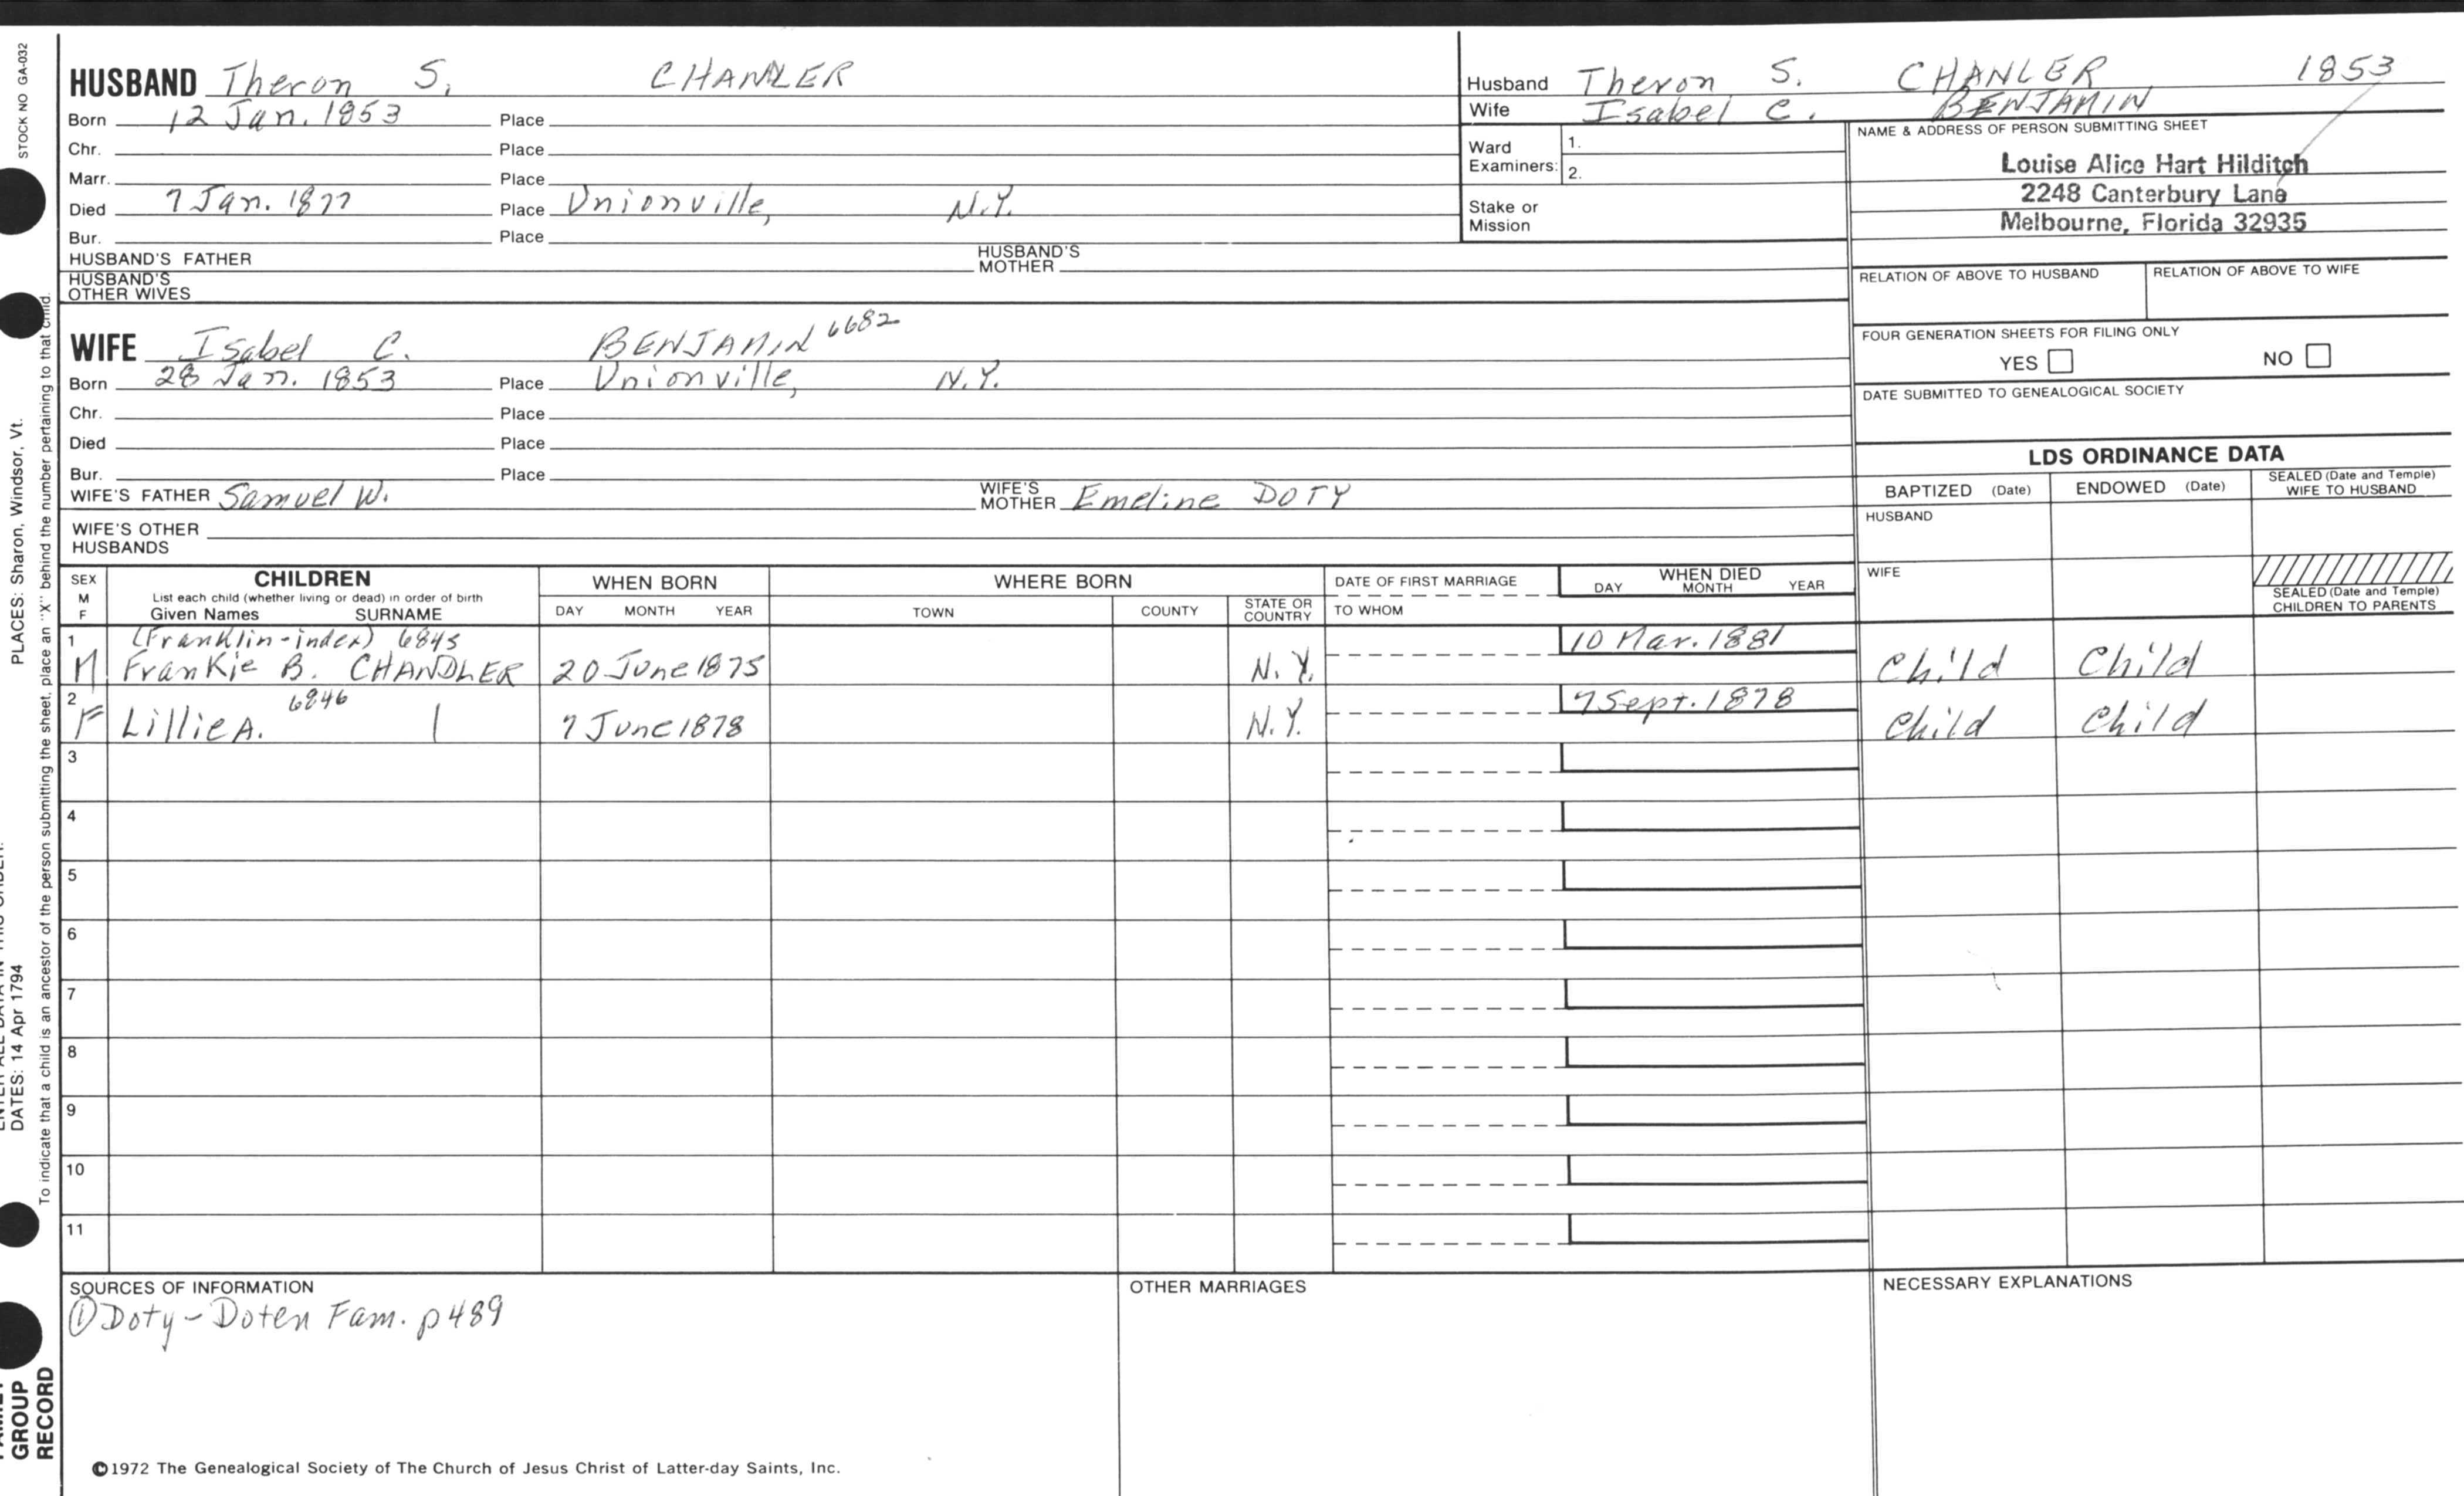 STOCK NO GA-032
PLACES: Sharon, Windsor, Vt.
DATES: 14 Apr 1794
To indicate that a child is an ancestor of the person submitting the sheet, place an "X" behind the number pertaining to that child.
GROUP
RECORD
HUSBAND Theron S. CHANLER
Born 12 Jan. 1853 Place
Chr. Place
Marr. Place
Died 7 Jan. 1877 Place Unionville, N.Y.
Bur. Place
HUSBAND'S FATHER HUSBAND'S MOTHER
HUSBAND'S OTHER WIVES
WIFE Isabel C. BENJAMIN 6682
Born 28 Jan. 1853 Place Unionville, N.Y.
Chr. Place
Died Place
Bur. Place
WIFE'S FATHER Samuel W. WIFE'S MOTHER Emeline DOTY
WIFE'S OTHER HUSBANDS
Husband Theron S. CHANLER 1853
Wife Isabel C. BENJAMIN
Ward Examiners: 1.
2.
Stake or Mission
NAME & ADDRESS OF PERSON SUBMITTING SHEET
Louise Alice Hart Hilditch
2248 Canterbury Lane
Melbourne, Florida 32935
RELATION OF ABOVE TO HUSBAND RELATION OF ABOVE TO WIFE
FOUR GENERATION SHEETS FOR FILING ONLY
YES NO
DATE SUBMITTED TO GENEALOGICAL SOCIETY
LDS ORDINANCE DATA
BAPTIZED (Date) ENDOWED (Date) SEALED (Date and Temple) WIFE TO HUSBAND
HUSBAND
WIFE
SEALED (Date and Temple) CHILDREN TO PARENTS
SEX M F CHILDREN WHEN BORN WHERE BORN DATE OF FIRST MARRIAGE WHEN DIED
List each child (whether living or dead) in order of birth
Given Names SURNAME DAY MONTH YEAR TOWN COUNTY STATE OR COUNTRY TO WHOM DAY MONTH YEAR
1 (Franklin-index) 6845 10 Mar. 1881
M Frankie B. CHANDLER 20 June 1875 N.Y. Child Child
2 6846 7 Sept. 1878
F Lillie A. | 7 June 1878 N.Y. Child Child
3
4
5
6
7
8
9
10
11
SOURCES OF INFORMATION OTHER MARRIAGES NECESSARY EXPLANATIONS
① Doty-Doten Fam. p489
©1972 The Genealogical Society of The Church of Jesus Christ of Latter-day Saints, Inc.